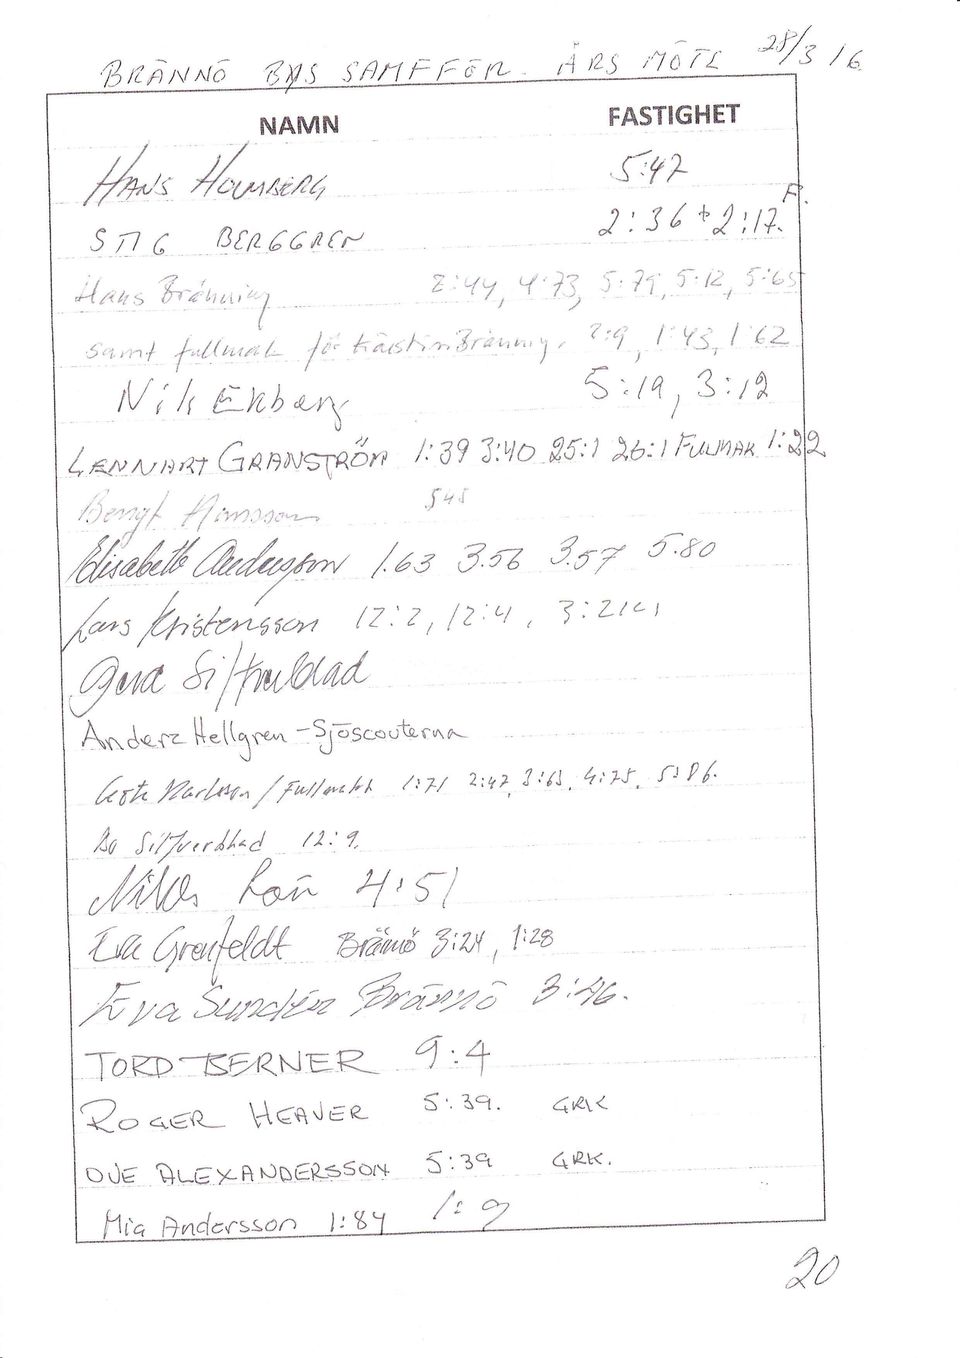 BRÄNNÖ BYS SAMFFÖR. ÅRS MÖTE 28/3 16
NAMN FASTIGHET
HANS HOLMBERG 5:47
STIG BERGGREN 2:36 + 2:17 F.
Hans Bränning 2:44, 4:73, 5:79, 5:12, 5:65
samt fullmakt för Kristin Bränning. 2:9, 1:43, 1:62
Nils Ekberg 5:19, 3:12
LENNART GRANSTRÖM 1:39 3:40 25:1 26:1 FULMAK 1:22
Bengt Hansson 545
Elisabeth Andersson 1.63 3.56 3.57 5.80
Lars Kristensson 12:2, 12:4, 3:21
Silfverblad
Anders Hellgren - Sjöscouterna
Karlsson / Fullmakt 1:71 2:47, 3:63, 4:75, 5:86.
Bo Silfverblad 12:9.
4:51
Eva Grenfeldt Brännö 3:24, 1:28
Eva Sundén Brännö 3:46.
TORD BERNER 9:4
ROGER HEAVER 5:39. GRK
OVE ALEXANDERSSON 5:39 GRK.
Mia Andersson 1:84 1:9
20